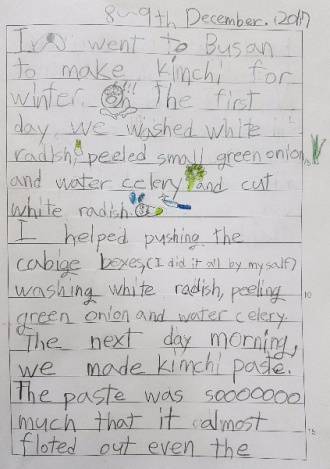 8~9th December. (2017)
I went to Busan
to make kimchi for
winter. On the first
day we washed white
radish, peeled small green onion
and water celery and cut
white radish.
I helped pushing the
cabige boxes, (I did it all by myself)
washing white radish, peeling
green onion and water celery.
The next day morning,
we made kimchi paste.
The paste was soooooooo
much that it almost
floted out even the